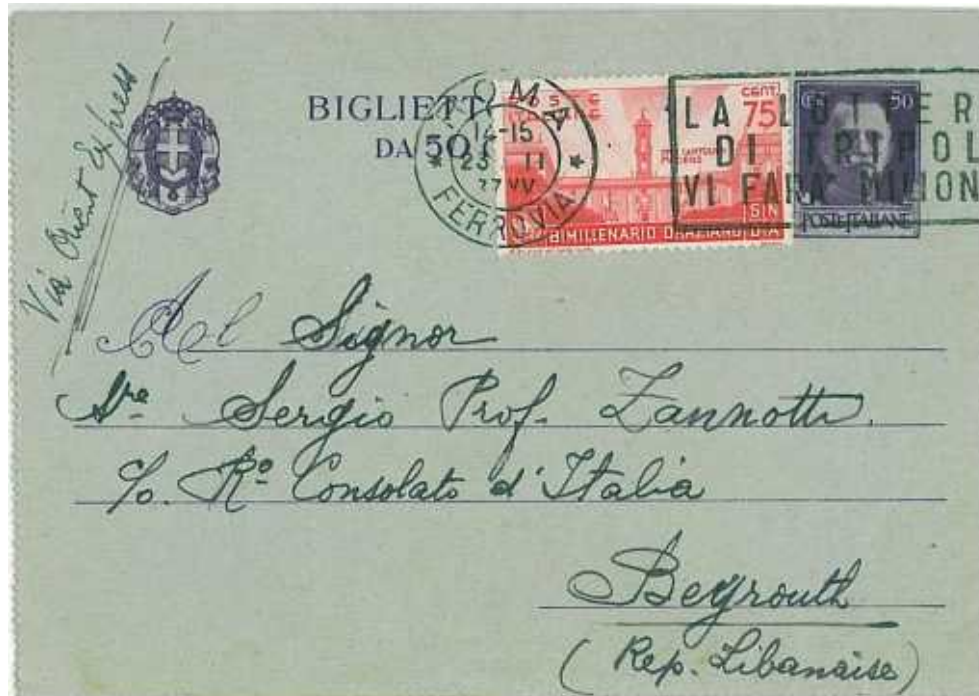 Via Orient Express
BIGLIETTO
DA 50
ROMA
14-15
FERROVIA
CENT.
75
BIMILLENARIO ORAZIANO
LA LOTTER
DI TRIPOL
VI FARÀ MILION
50
POSTE ITALIANE
Al Signor
Sergio Prof. Zannotti.
c/o. Rº Consolato d'Italia
Beyrouth
(Rep. Libanaise)